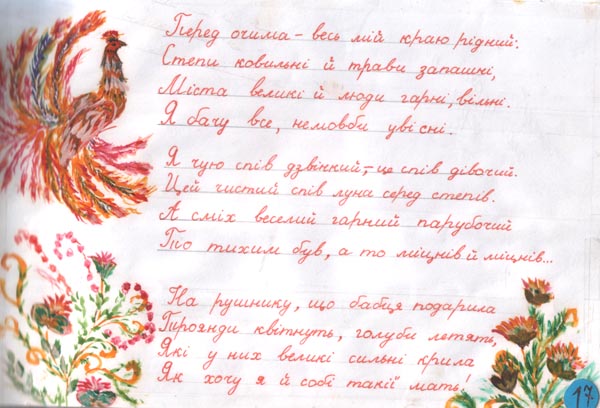 Перед очима – весь мій краю рідний:
Степи ковильні й трави запашні,
Міста великі й люди гарні, вільні.
Я бачу все, немовби уві сні.
Я чую спів дзвінкий, – це спів дівочий.
Цей чистий спів луна серед степів.
А сміх веселий гарний парубочий
То тихим був, а то міцнів й міцнів...
На рушнику, що бабця подарила
Троянди квітнуть, голуби летять,
Які у них великі сильні крила
Як хочу я й собі такії мать!
17